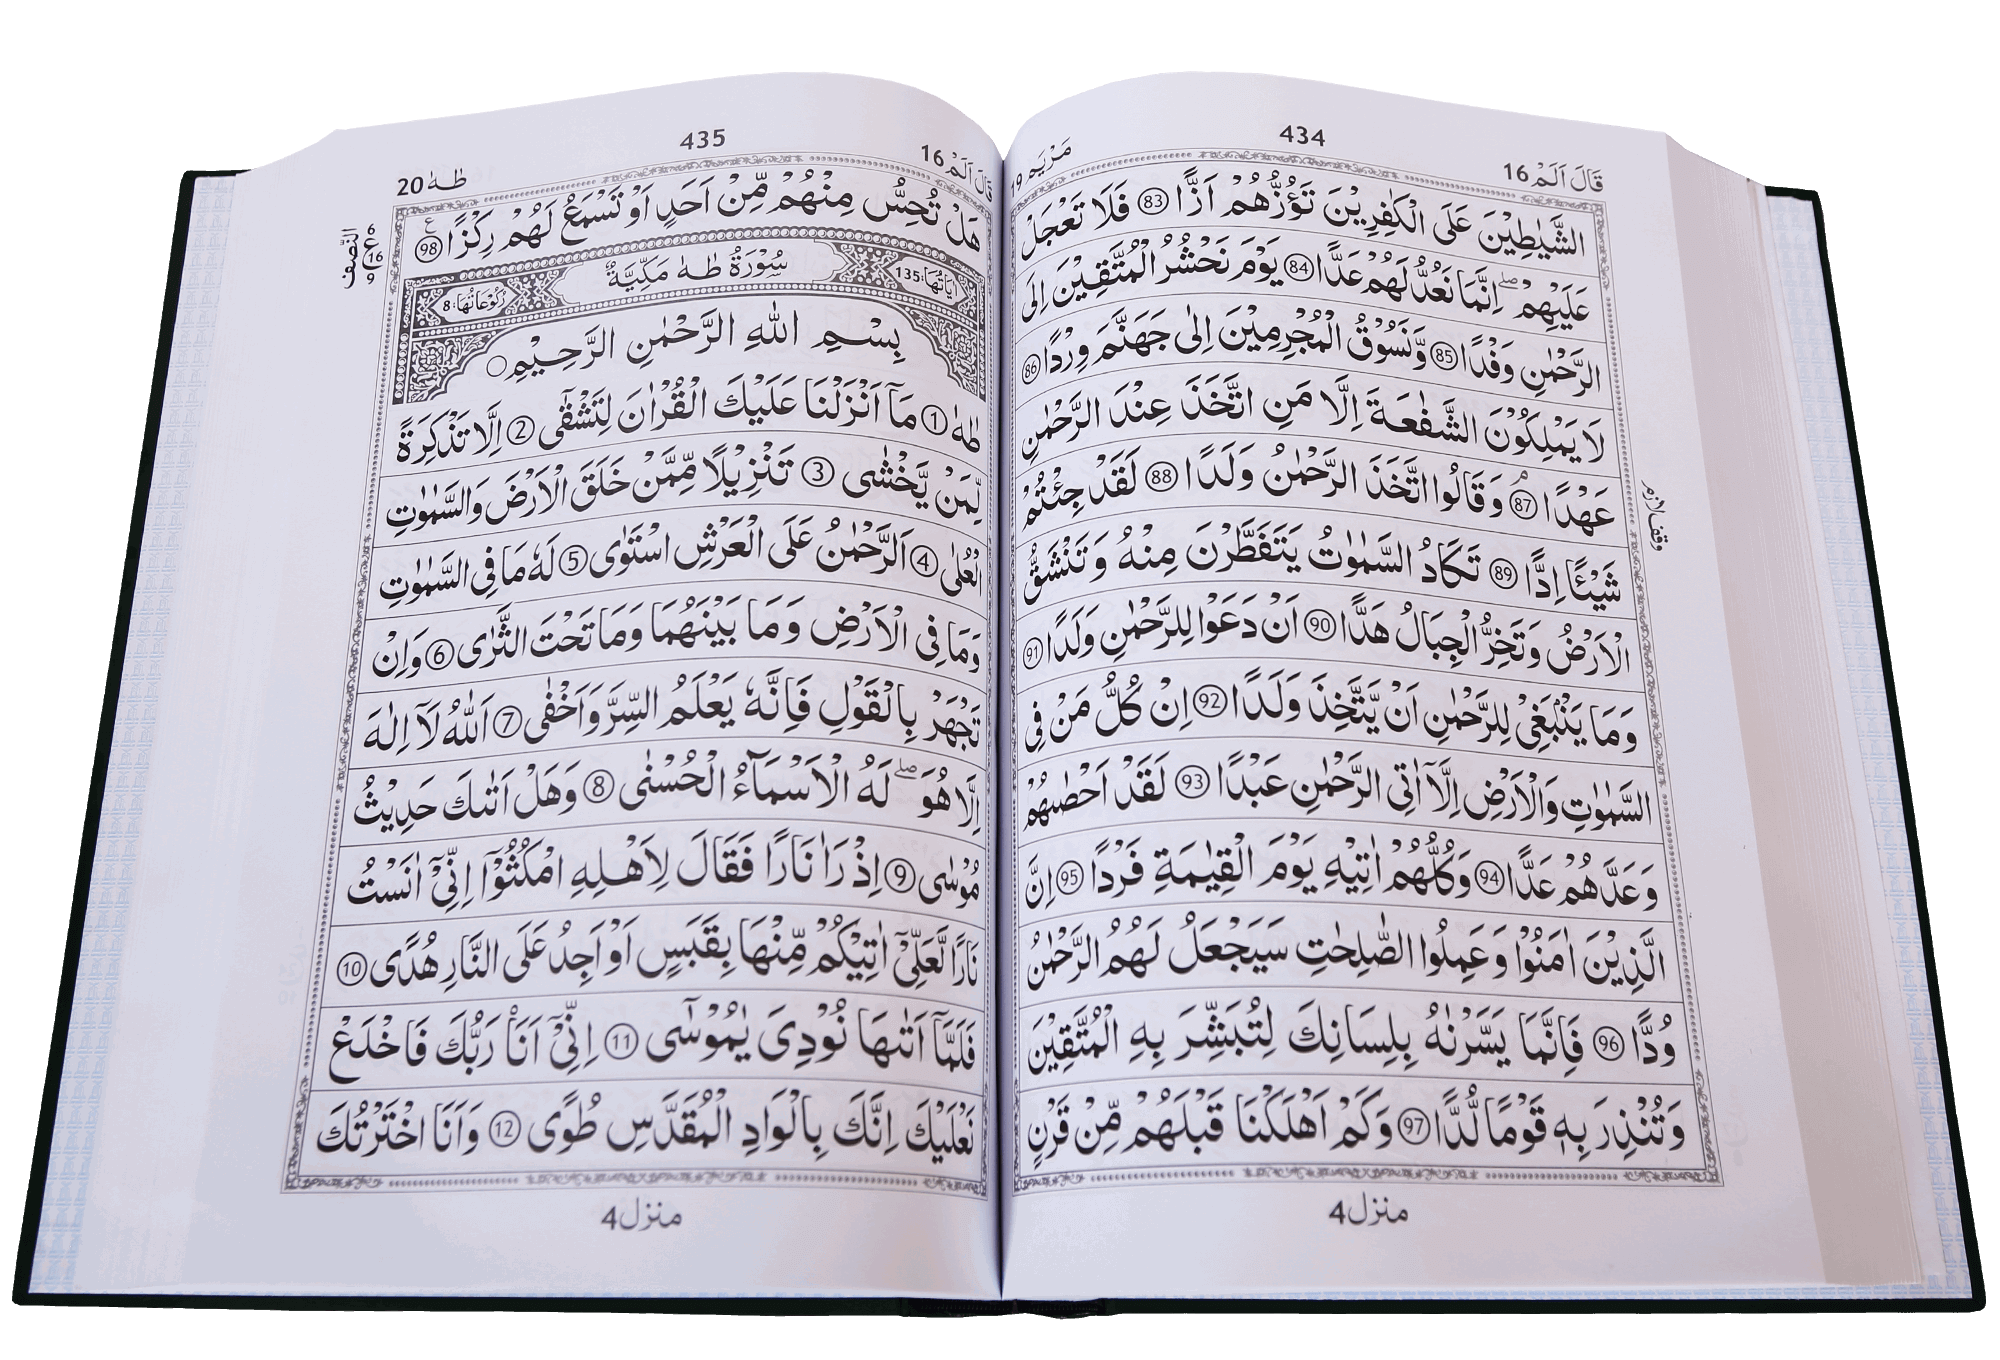 قَالَ اَلَمْ 16
434
مَرْيَم 19
الشَّيٰطِيْنَ عَلَى الْكٰفِرِيْنَ تَؤُزُّهُمْ اَزًّا 83 فَلَا تَعْجَلْ
عَلَيْهِمْ ؕ اِنَّمَا نَعُدُّ لَهُمْ عَدًّا 84 يَوْمَ نَحْشُرُ الْمُتَّقِيْنَ اِلَى
الرَّحْمٰنِ وَفْدًا 85 وَّنَسُوْقُ الْمُجْرِمِيْنَ اِلٰى جَهَنَّمَ وِرْدًا 86
لَا يَمْلِكُوْنَ الشَّفٰعَةَ اِلَّا مَنِ اتَّخَذَ عِنْدَ الرَّحْمٰنِ
عَهْدًا 87 وَقَالُوا اتَّخَذَ الرَّحْمٰنُ وَلَدًا 88 لَقَدْ جِئْتُمْ
شَيْئًا اِدًّا 89 تَكَادُ السَّمٰوٰتُ يَتَفَطَّرْنَ مِنْهُ وَتَنْشَقُّ
الْاَرْضُ وَتَخِرُّ الْجِبَالُ هَدًّا 90 اَنْ دَعَوْا لِلرَّحْمٰنِ وَلَدًا 91
وَمَا يَنْۢبَغِيْ لِلرَّحْمٰنِ اَنْ يَّتَّخِذَ وَلَدًا 92 اِنْ كُلُّ مَنْ فِي
السَّمٰوٰتِ وَالْاَرْضِ اِلَّاۤ اٰتِي الرَّحْمٰنِ عَبْدًا 93 لَقَدْ اَحْصٰىهُمْ
وَعَدَّهُمْ عَدًّا 94 وَكُلُّهُمْ اٰتِيْهِ يَوْمَ الْقِيٰمَةِ فَرْدًا 95 اِنَّ
الَّذِيْنَ اٰمَنُوْا وَعَمِلُوا الصّٰلِحٰتِ سَيَجْعَلُ لَهُمُ الرَّحْمٰنُ
وُدًّا 96 فَاِنَّمَا يَسَّرْنٰهُ بِلِسَانِكَ لِتُبَشِّرَ بِهِ الْمُتَّقِيْنَ
وَتُنْذِرَ بِهٖ قَوْمًا لُّدًّا 97 وَكَمْ اَهْلَكْنَا قَبْلَهُمْ مِّنْ قَرْنٍ
منزل 4
قَالَ اَلَمْ 16
435
طٰهٰ 20
هَلْ تُحِسُّ مِنْهُمْ مِّنْ اَحَدٍ اَوْ تَسْمَعُ لَهُمْ رِكْزًا 98
النّصف
ع
16
اٰيَاتُهَا: 135
سُوْرَةُ طٰهٰ مَكِّيَّةٌ
رُكُوْعَاتُهَا: 8
بِسْمِ اللّٰهِ الرَّحْمٰنِ الرَّحِيْمِ
طٰهٰ 1 مَاۤ اَنْزَلْنَا عَلَيْكَ الْقُرْاٰنَ لِتَشْقٰۤى 2 اِلَّا تَذْكِرَةً
لِّمَنْ يَّخْشٰى 3 تَنْزِيْلًا مِّمَّنْ خَلَقَ الْاَرْضَ وَالسَّمٰوٰتِ
الْعُلٰى 4 اَلرَّحْمٰنُ عَلَى الْعَرْشِ اسْتَوٰى 5 لَهٗ مَا فِي السَّمٰوٰتِ
وَمَا فِي الْاَرْضِ وَمَا بَيْنَهُمَا وَمَا تَحْتَ الثَّرٰى 6 وَاِنْ
تَجْهَرْ بِالْقَوْلِ فَاِنَّهٗ يَعْلَمُ السِّرَّ وَاَخْفٰى 7 اَللّٰهُ لَاۤ اِلٰهَ
اِلَّا هُوَ ؕ لَهُ الْاَسْمَآءُ الْحُسْنٰى 8 وَهَلْ اَتٰىكَ حَدِيْثُ
مُوْسٰى 9 اِذْ رَاٰ نَارًا فَقَالَ لِاَهْلِهِ امْكُثُوْۤا اِنِّيْۤ اٰنَسْتُ
نَارًا لَّعَلِّيْۤ اٰتِيْكُمْ مِّنْهَا بِقَبَسٍ اَوْ اَجِدُ عَلَى النَّارِ هُدًى 10
فَلَمَّاۤ اَتٰىهَا نُوْدِيَ يٰمُوْسٰۤى 11 اِنِّيْۤ اَنَا۠ رَبُّكَ فَاخْلَعْ
نَعْلَيْكَ اِنَّكَ بِالْوَادِ الْمُقَدَّسِ طُوًى 12 وَاَنَا اخْتَرْتُكَ
منزل 4